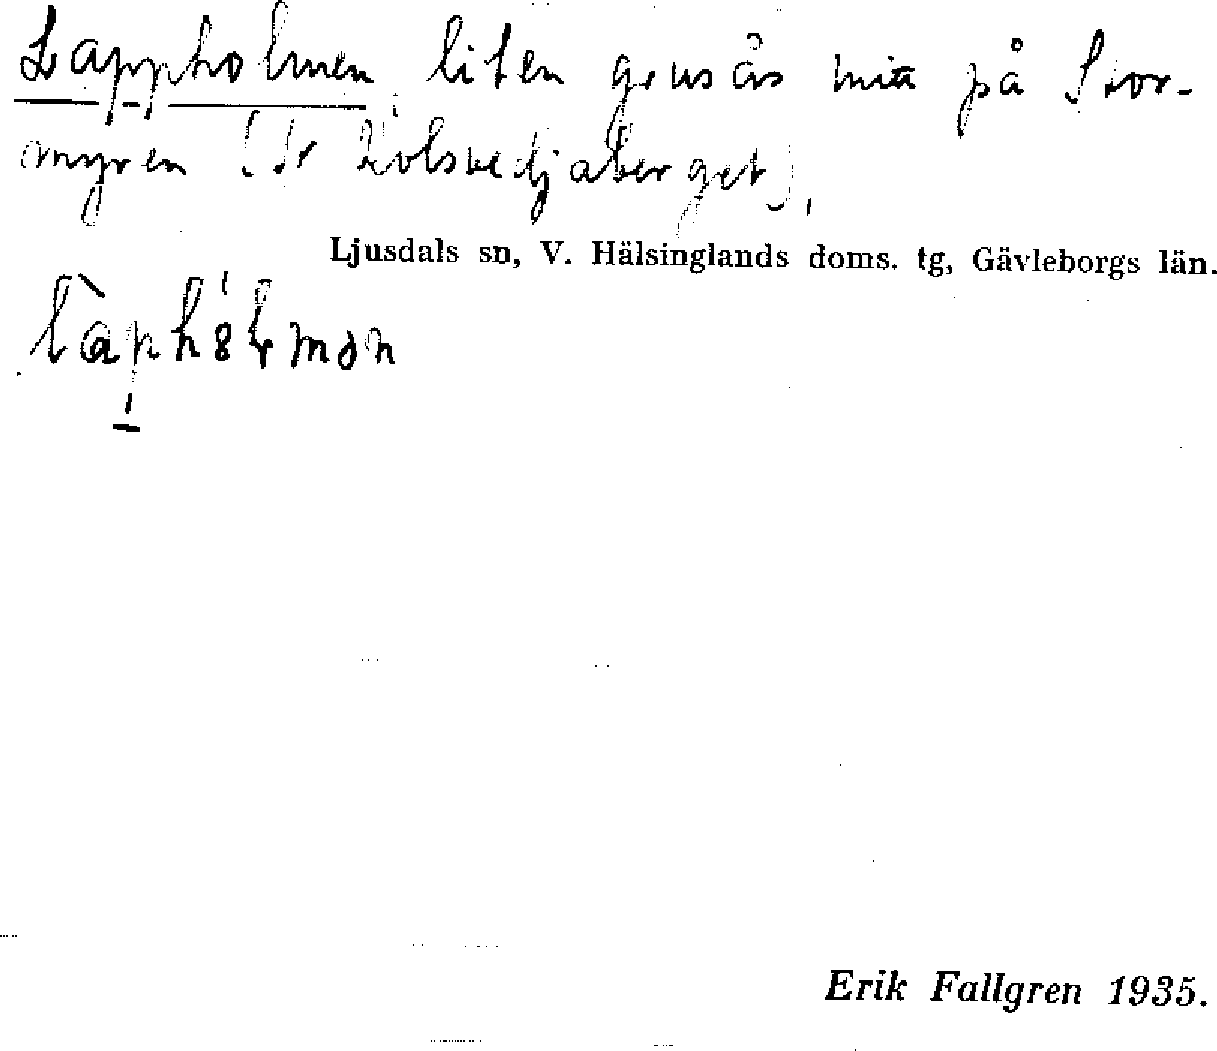 Lappholmen, liten grusås mitt på Stor-
myren (St Kolsvedjaberget).
Ljusdals sn, V. Hälsinglands doms. tg, Gävleborgs län.
Erik Fallgren 1935.